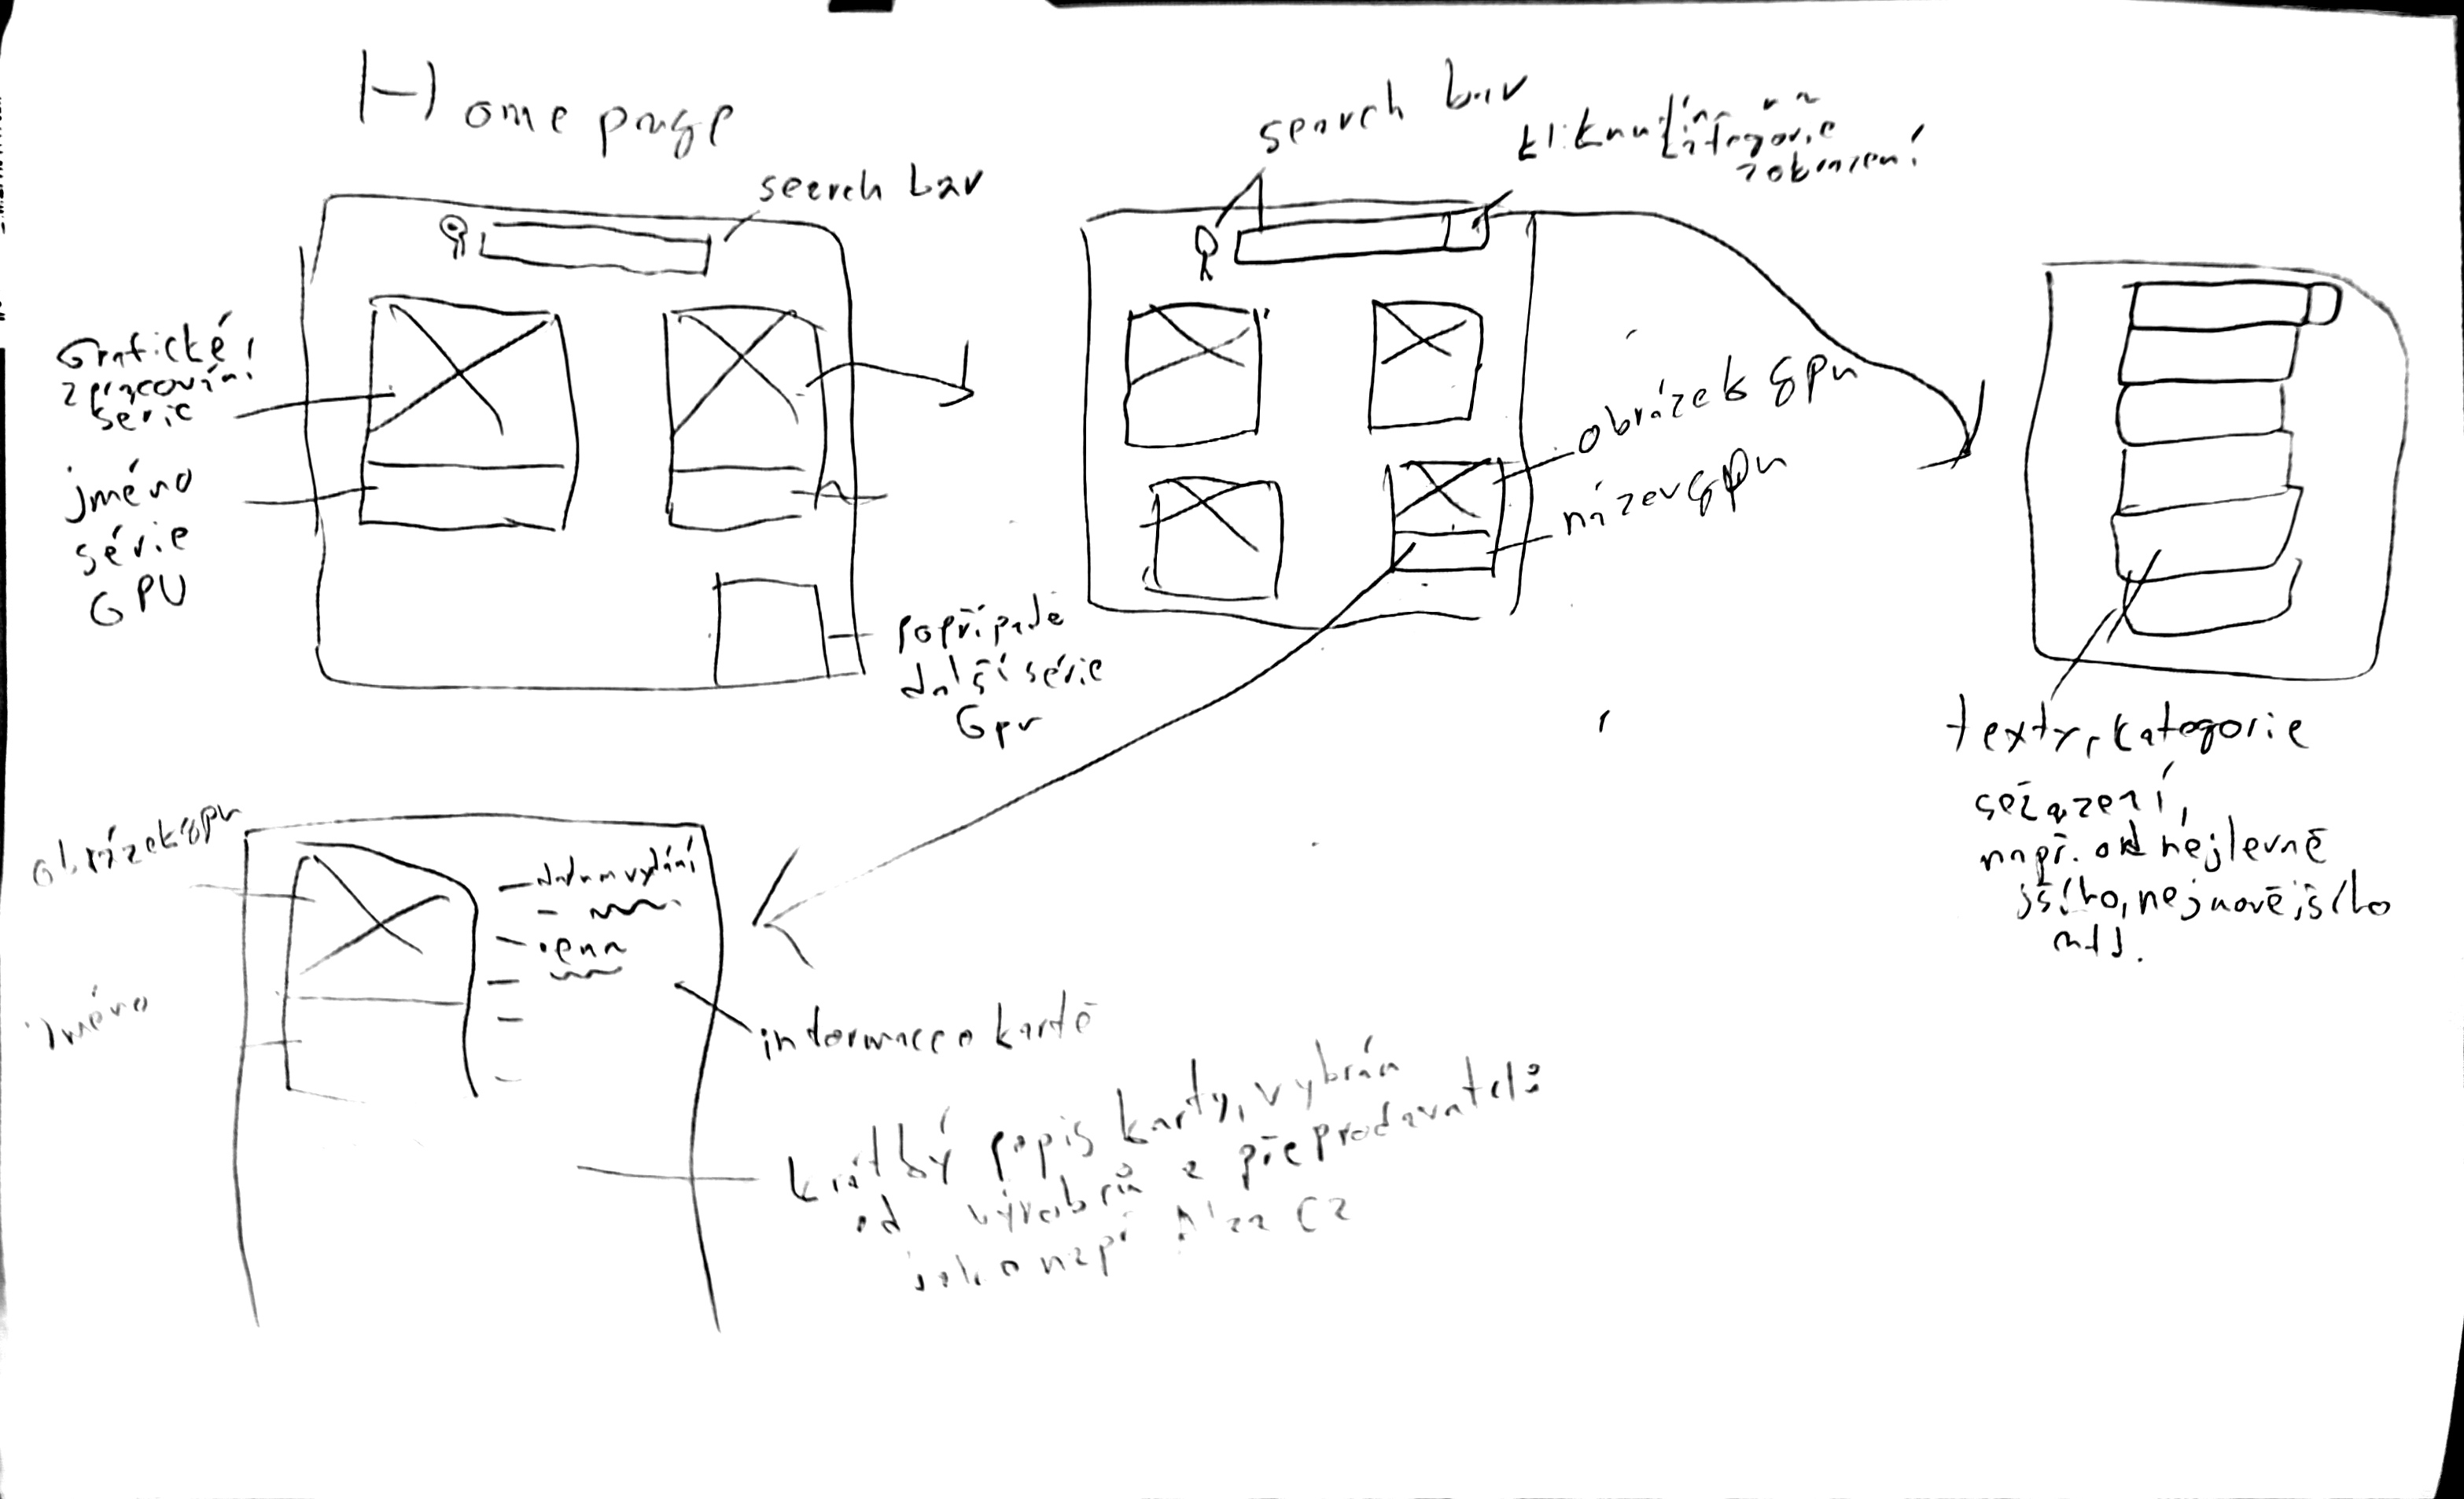 Home page
search bar
Grafické
zpracování
série
jméno
série
GPU
popřípadě
další série
Gpu
search bar
kliknutí na
kategorie
zobrazení
obrázek gpu
název gpu
texty, kategorie
seřazení,
např. od nejlevně
jšího, nejnovějšího
atd.
obrázek gpu
jméno
datum vydání
cena
informace o kartě
krátký popis karty, vybrán
od výrobců a přeprodavatelů
jako např Alza CZ